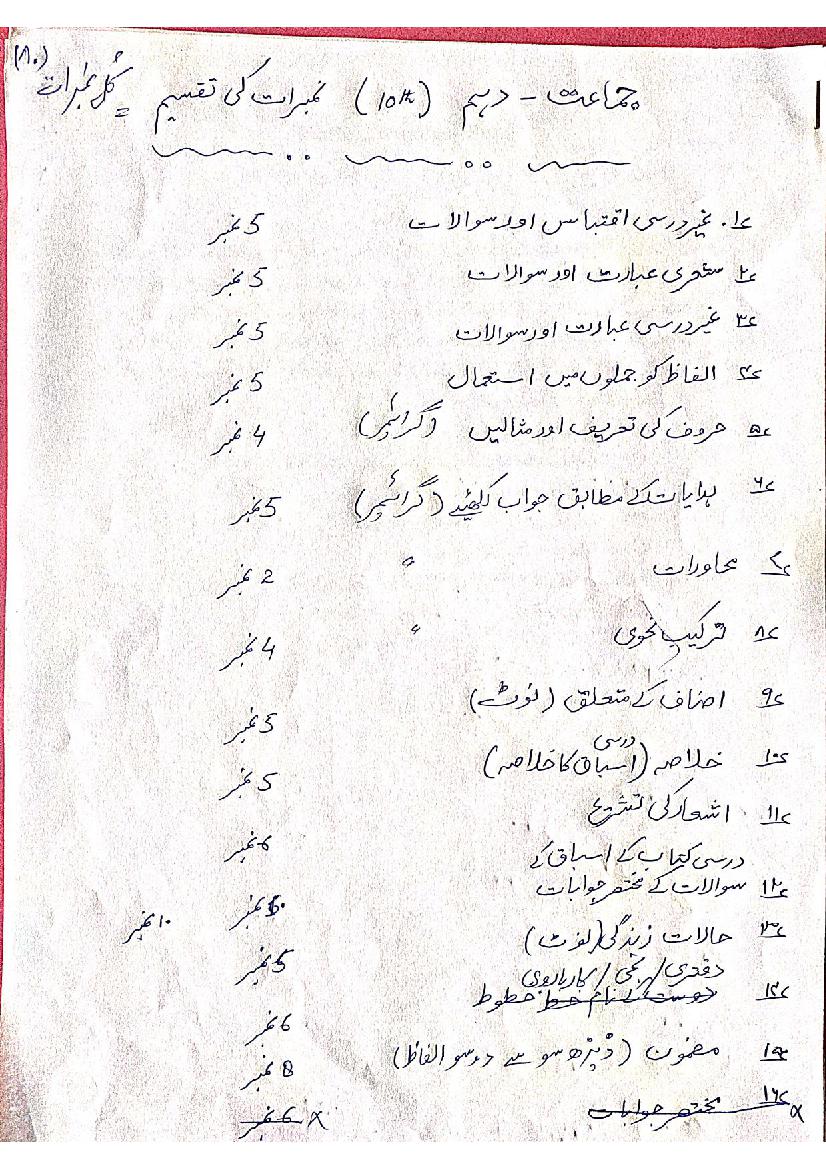 جماعت - دہم (10th) نمبرات کی تقسیم = کُل نمبرات (۸۰)
۱ء. غیر درسی اقتباس اور سوالات 5 نمبر
۲ء شعری عبارت اور سوالات 5 نمبر
۳ء غیر درسی عبارت اور سوالات 5 نمبر
۴ء الفاظ کو جملوں میں استعمال 5 نمبر
۵ء حروف کی تعریف اور مثالیں (گرائمر) 4 نمبر
۶ء ہدایات کے مطابق جواب لکھیئے (گرائمر) 5 نمبر
۷ء محاورات " 2 نمبر
۸ء ترکیب نحوی " 4 نمبر
۹ء اصناف کے متعلق (نوٹ) 5 نمبر
۱۰ء خلاصہ (درسی اسباق کا خلاصہ) 5 نمبر
۱۱ء اشعار کی تشریح 6 نمبر
درسی کتاب کے اسباق کے
۱۲ء سوالات کے مختصر جوابات نمبر ۱۰ نمبر
۱۳ء حالات زندگی (نوٹ) 5 نمبر
دفتری / نجی / کاروباری
۱۴ء دوست کے نام خط خطوط 6 نمبر
۱۵ء مضمون (ڈیڑھ سو سے دو سو الفاظ) 8 نمبر
۱۶ء مختصر جوابات 6 نمبر x x